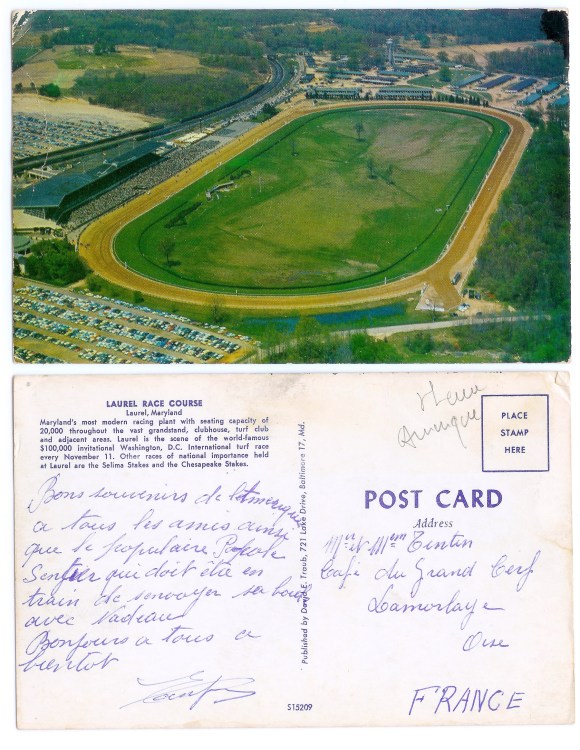 LAUREL RACE COURSE
Laurel, Maryland
Maryland's most modern racing plant with seating capacity of
20,000 throughout the vast grandstand, clubhouse, turf club
and adjacent areas. Laurel is the scene of the world-famous
$100,000 invitational Washington, D.C. International turf race
every November 11. Other races of national importance held
at Laurel are the Selima Stakes and the Chesapeake Stakes.
Bons souvenirs de l'Amerique
a tous les amis ainsi
que le populaire
qui doit être en
train de sa
avec Nadeau
Bonjours a tous a
bientot
Published by David E. Traub, 721 Lake Drive, Baltimore 17, Md.
S15209
Amerique
PLACE
STAMP
HERE
POST CARD
Address
Mr et Mme Tintin
Café du Grand Cerf
Lamorlaye
Oise
FRANCE